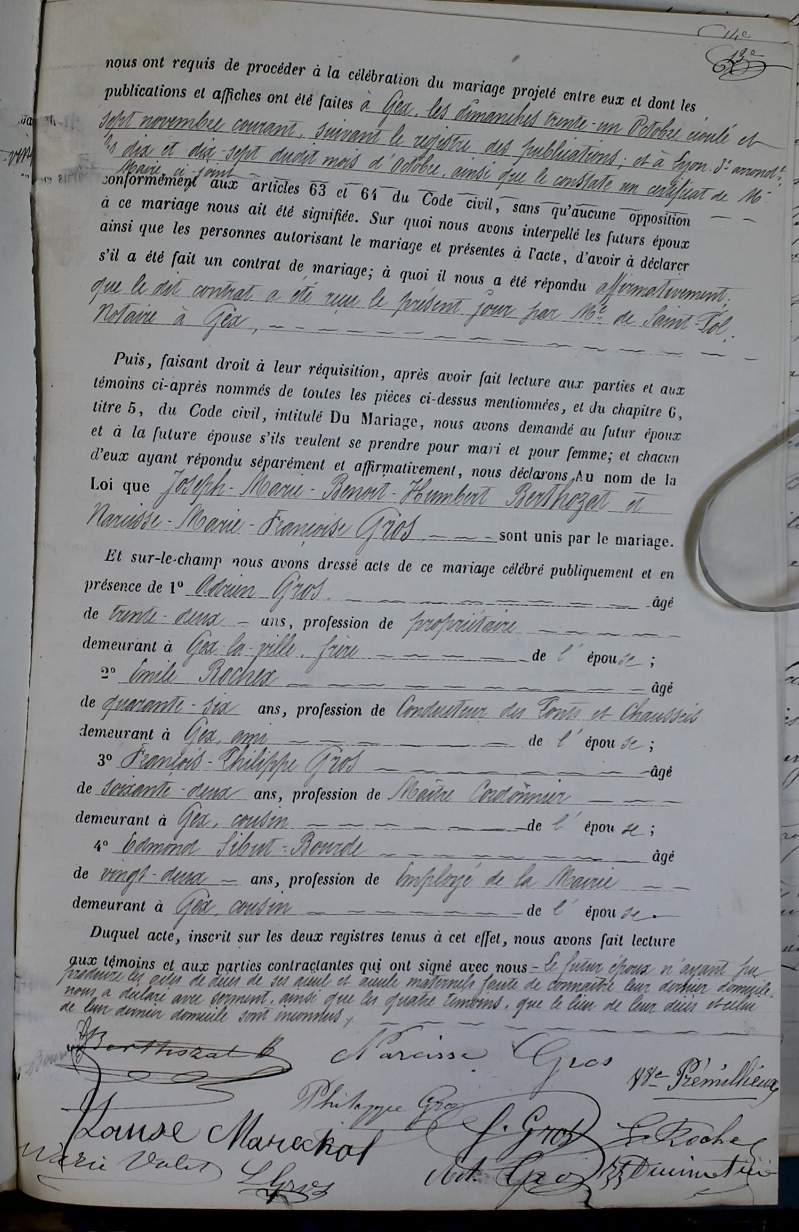 14e
13e
nous ont requis de procéder à la célébration du mariage projeté entre eux et dont les
publications et affiches ont été faites à Gex, les dimanches trente-un Octobre écoulé et
sept novembre courant, suivant le registre des publications; et à Lyon 3e arrondt,
les dix et dix-sept dudit mois d'Octobre, ainsi que le constate un certificat de Mr
Maire, ci-joint
conformément aux articles 63 et 64 du Code civil, sans qu'aucune opposition
à ce mariage nous ait été signifiée. Sur quoi nous avons interpellé les futurs époux
ainsi que les personnes autorisant le mariage et présentes à l'acte, d'avoir à déclarer
s'il a été fait un contrat de mariage; à quoi il nous a été répondu affirmativement;
que le dit contrat a été reçu le présent jour par Me de Saint-Pol,
Notaire à Gex,
Puis, faisant droit à leur réquisition, après avoir fait lecture aux parties et aux
témoins ci-après nommés de toutes les pièces ci-dessus mentionnées, et du chapitre 6,
titre 5, du Code civil, intitulé Du Mariage, nous avons demandé au futur époux
et à la future épouse s'ils veulent se prendre pour mari et pour femme; et chacun
d'eux ayant répondu séparément et affirmativement, nous déclarons Au nom de la
Loi que Joseph-Marie-Benoit-Humbert Berthozat et
Narcisse-Marie-Françoise Gros sont unis par le mariage.
Et sur-le-champ nous avons dressé acte de ce mariage célébré publiquement et en
présence de 1° Adrien Gros âgé
de trente-deux ans, profession de propriétaire
demeurant à Gex la ville, frère de l'épouse;
2° Emile Rochex âgé
de quarante-six ans, profession de Conducteur des Ponts et Chaussées
demeurant à Gex, ami de l'épouse;
3° François-Philippe Gros âgé
de soixante-deux ans, profession de Maître Cordonnier
demeurant à Gex, cousin de l'épouse;
4° Edmond Sibut-Bourde âgé
de vingt-deux ans, profession de Employé de la Mairie
demeurant à Gex, cousin de l'épouse.
Duquel acte, inscrit sur les deux registres tenus à cet effet, nous avons fait lecture
aux témoins et aux parties contractantes qui ont signé avec nous - Le futur époux n'ayant pu
produire les actes de décès de ses aïeul et aïeule maternels faute de connaître leur dernier domicile,
nous a déclaré avec serment, ainsi que les quatre témoins, que le lieu de leur décès et celui
de leur dernier domicile sont inconnus,
Berthozat Narcisse Gros Vve Prémillieux
Philippe Gros
Louise Marechal J. Gros E. Rochex
Marie Valet L. Gros Ad. Gros